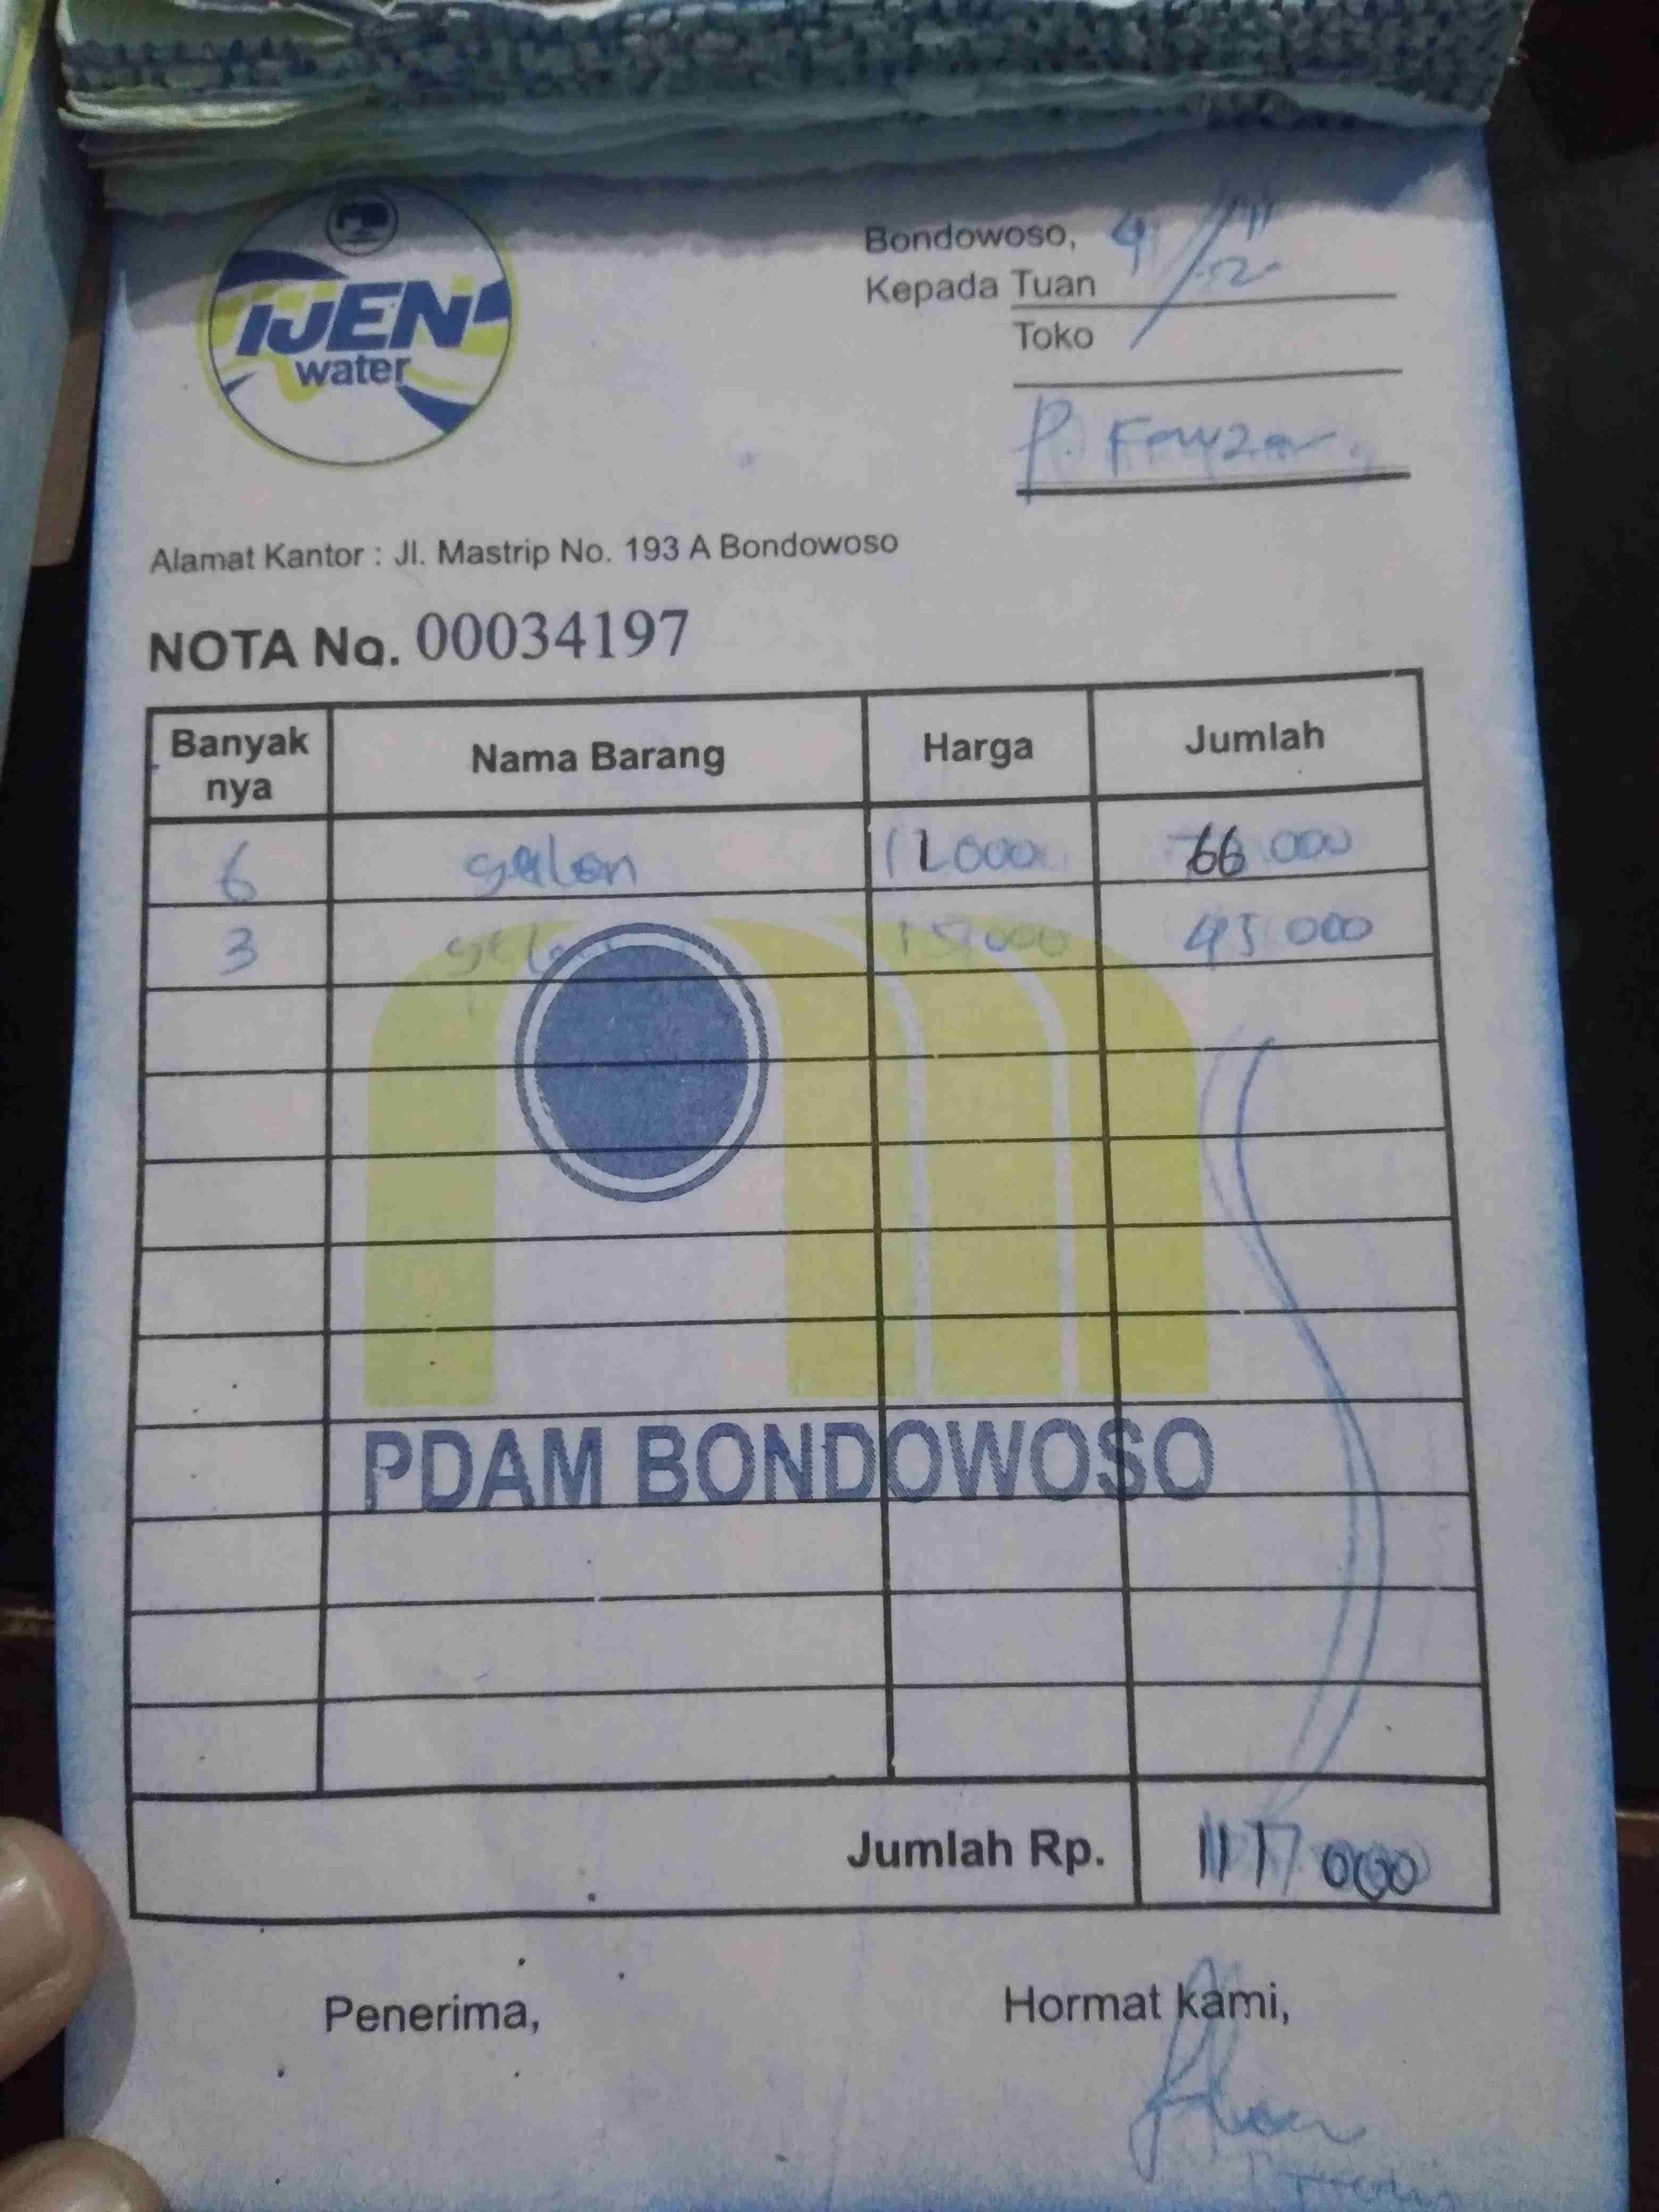 IJEN
water
Bondowoso, 9/11
Kepada Tuan
Toko
P. Fauzan
Alamat Kantor : Jl. Mastrip No. 193 A Bondowoso
NOTA No. 00034197
Banyak nya Nama Barang Harga Jumlah
6 galon 11000 66 000
3 galon 15,000 45 000
PDAM BONDOWOSO
Jumlah Rp. 000
Penerima, Hormat kami,